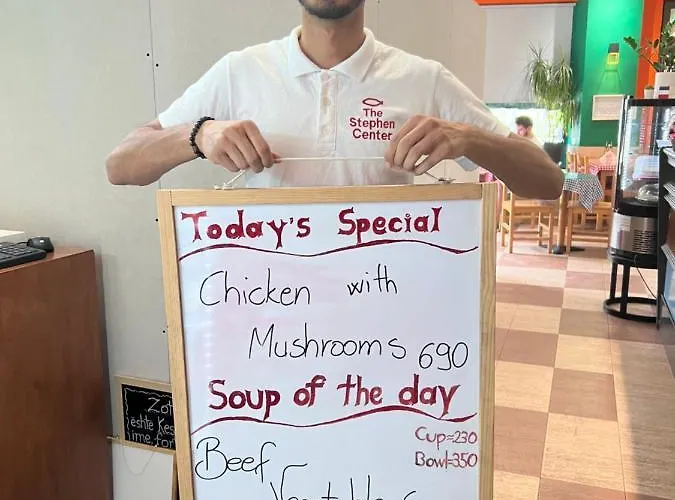 The
Stephen
Center
Today's Special
Chicken with
Mushrooms 690
Soup of the day
Cup=230
Bowl=350
Beef
Vegetable
Zot
është Kes
ime, for